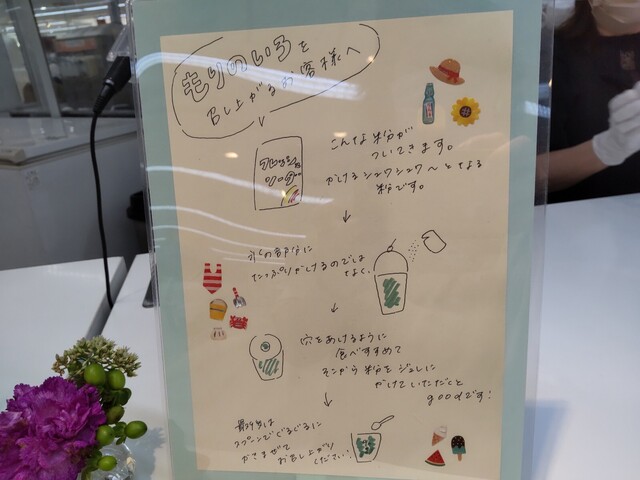 もりのいろを
召し上がるお客様へ
こんな粉が
ついてきます。
かけるとシュワシュワ〜となる
粉です。
氷の部分に
たっぷりかけるのでは
なく、
穴をあけるように
食べすすめて
そこから粉をジュレに
かけていただくと
goodです!
最後は
スプーンでぐるぐるに
かきまぜて
お召し上がり
ください!